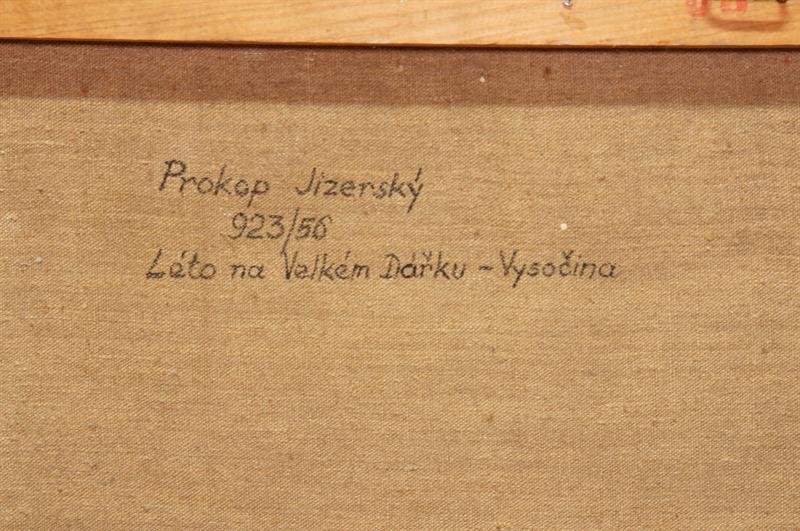 Prokop Jizerský
923/56
Léto na Velkém Dářku - Vysočina